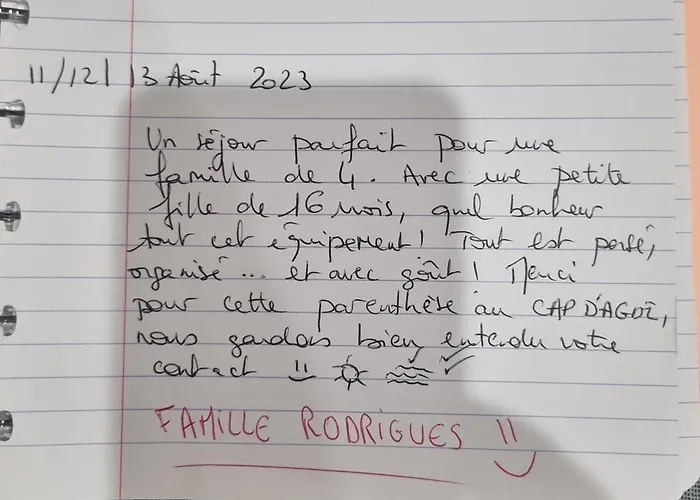 11/12/13 Août 2023
Un séjour parfait pour une
famille de 4. Avec une petite
fille de 16 mois, quel bonheur
tout cet équipement! Tout est pensé,
organisé... et avec goût! Merci
pour cette parenthèse au CAP D'AGDE,
nous gardons bien entendu votre
contact
FAMILLE RODRIGUES